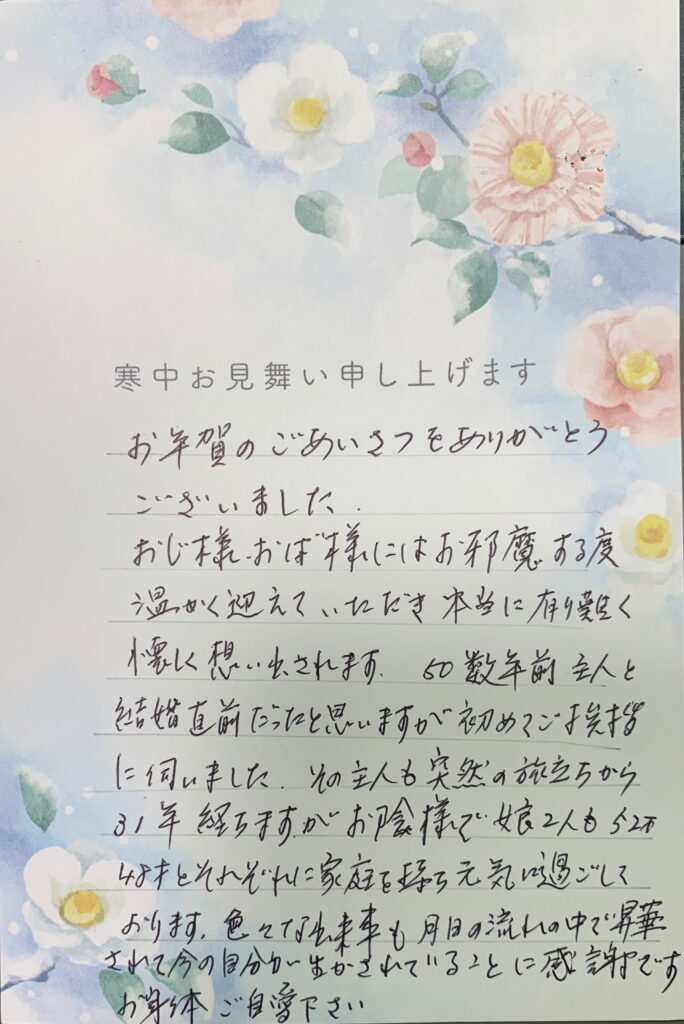 寒中お見舞い申し上げます
お年賀のごあいさつをありがとう
ございました.
おじ様.おば様にはお邪魔する度
温かく迎えていただき本当に有り難く
懐しく想い出されます. 50数年前主人と
結婚直前だったと思いますが初めてご挨拶
に伺いました. その主人も突然の旅立ちから
31年経ちますがお陰様で娘2人も52才
48才とそれぞれに家庭を持ち元気に過ごして
おります. 色々な出来事も月日の流れの中で昇華
されて今の自分が生かされていることに感謝です
お身体ご自愛下さい